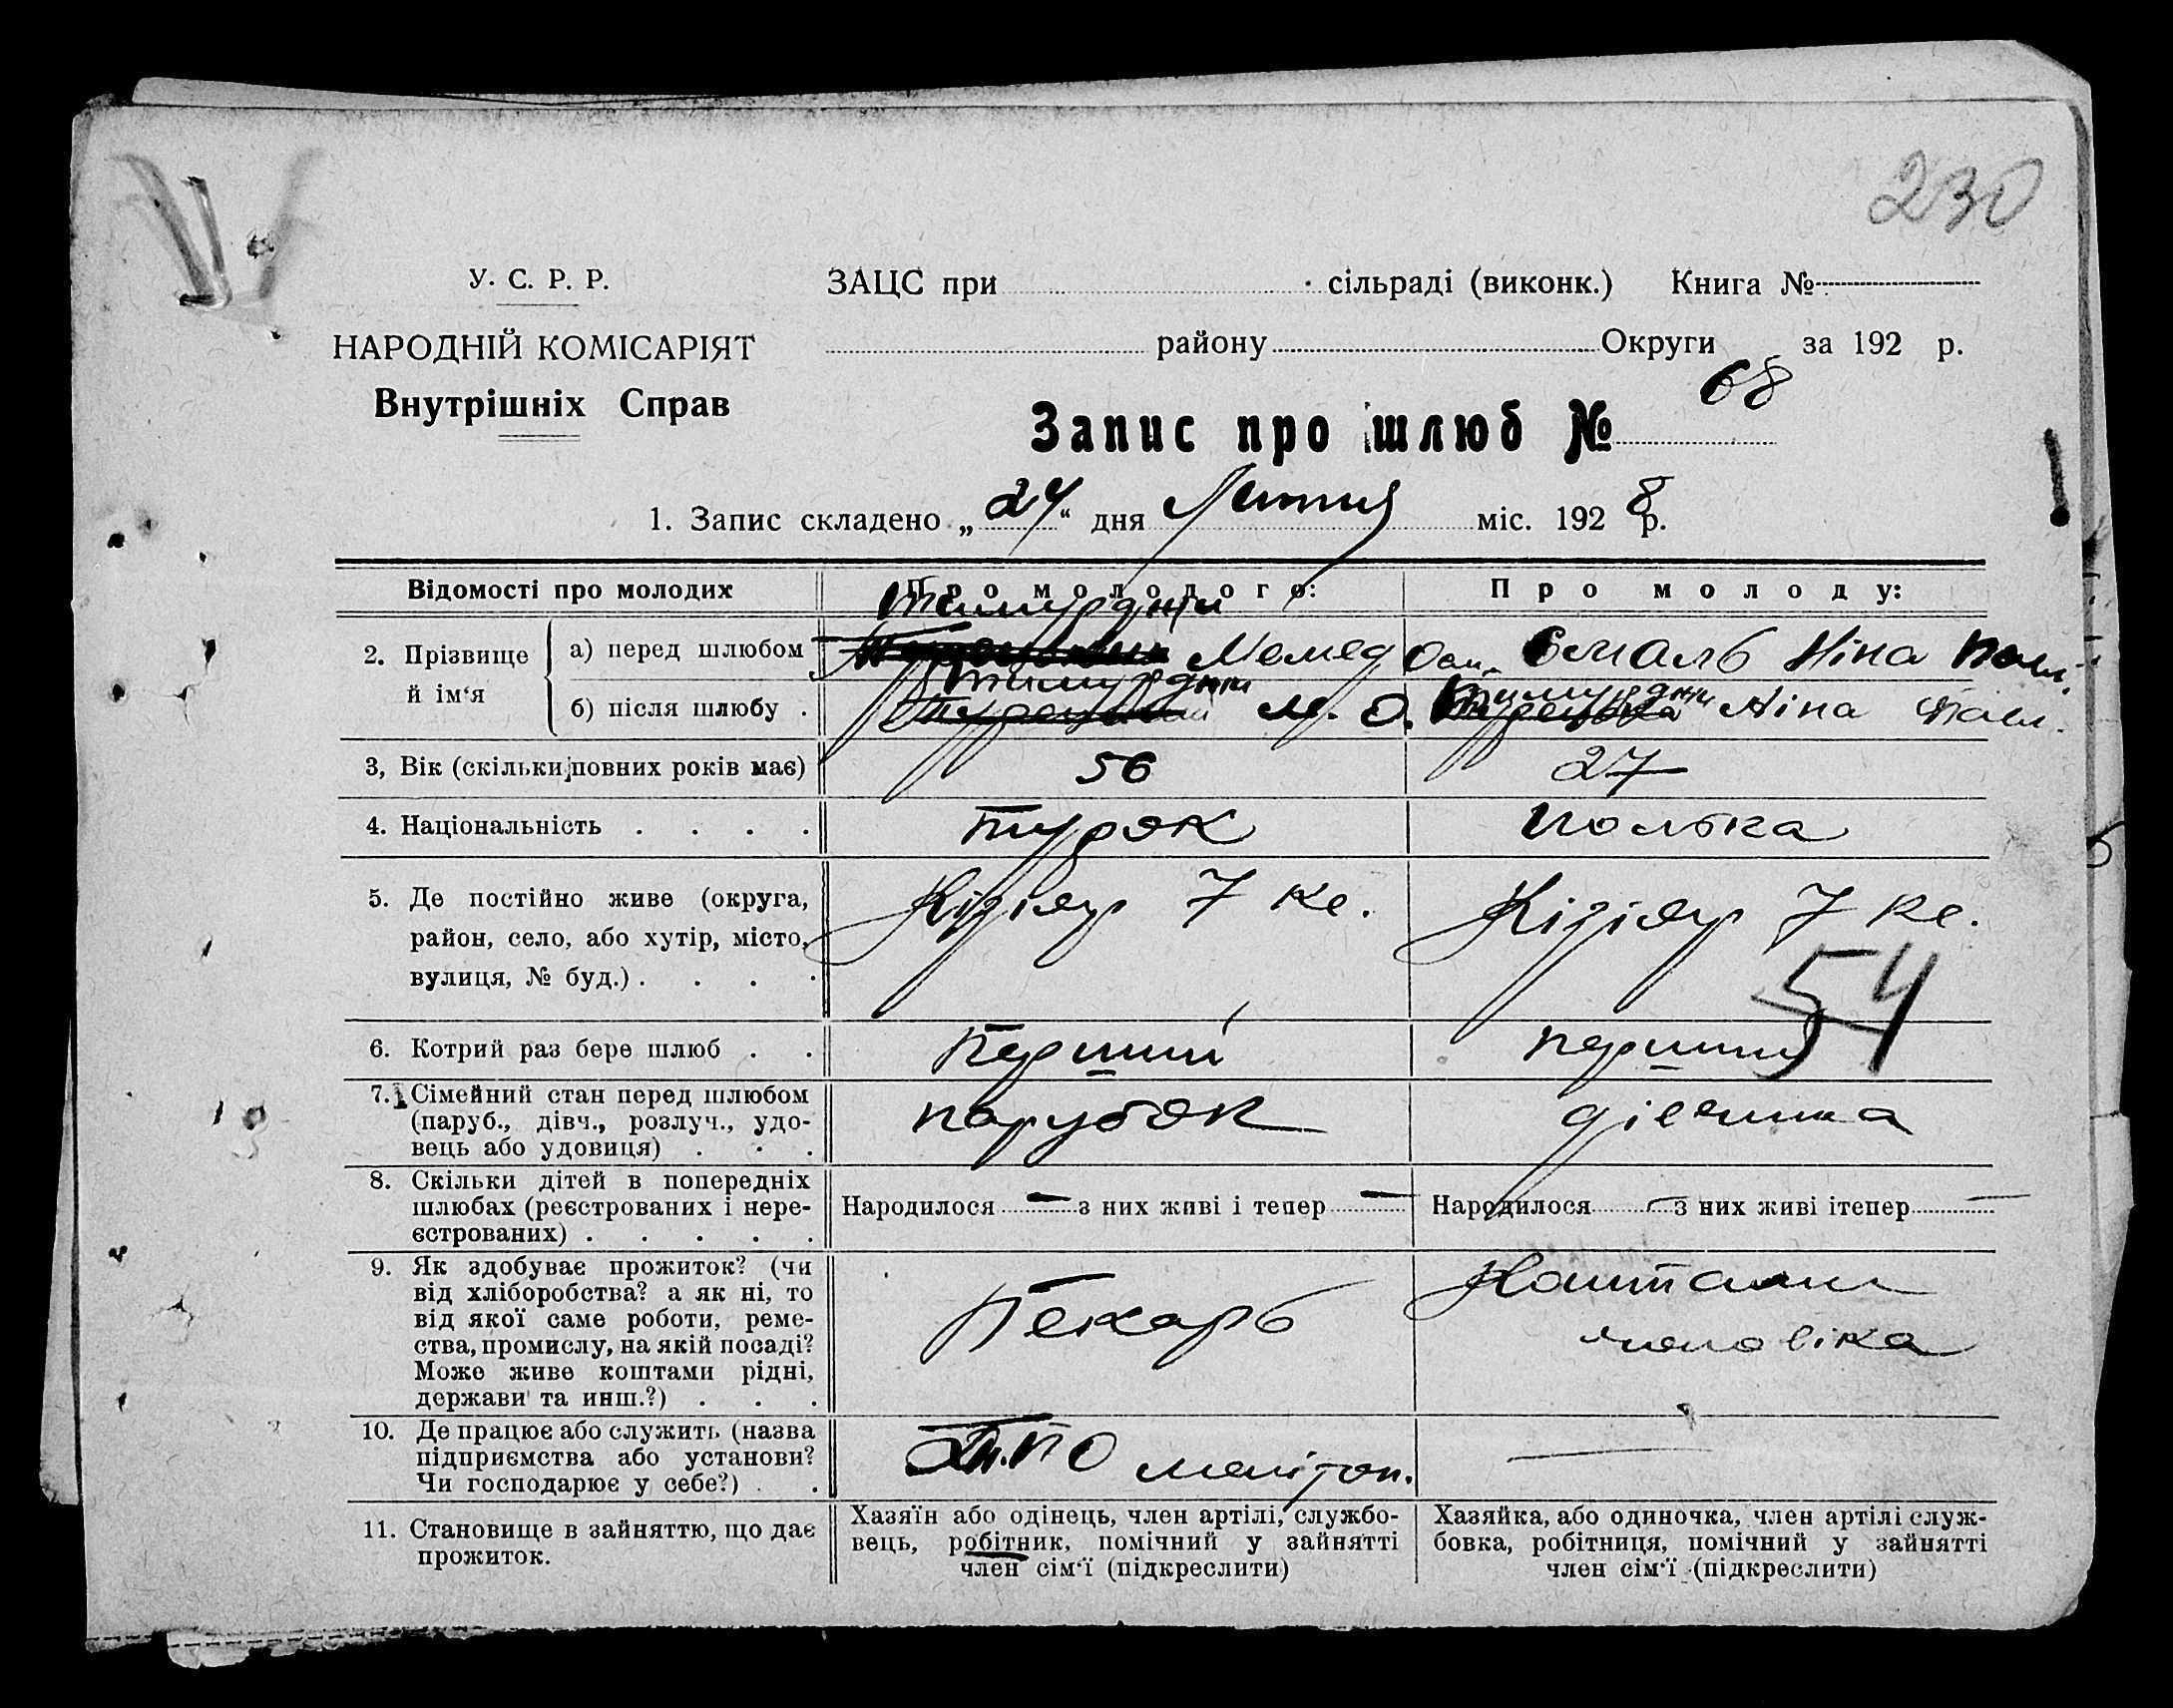 230
У. С. Р. Р.
ЗАЦС при сільраді (виконк.) Книга №
НАРОДНІЙ КОМІСАРІЯТ
району Округи за 192 р.
Внутрішніх Справ
Запис про шлюб № 68
1. Запис складено „24“ дня Лютий міс. 1928 р.
Відомості про молодих
Про молодого:
Про молоду:
2. Прізвище й ім‘я
а) перед шлюбом
Мамед Осм.
Ніна Павл.
б) після шлюбу .
М. О.
Ніна Павл.
3, Вік (скільки повних років має)
56
27
4. Національність . . . .
турок
полька
5. Де постійно живе (округа,
район, село, або хутір, місто,
вулиця, № буд.) . . . .
Кізіяр 7 кв.
Кізіяр 7 кв.
54
6. Котрий раз бере шлюб . .
Перший
перший
7. Сімейний стан перед шлюбом
(паруб., дівч., розлуч., удо-
вець або удовиця) . . .
парубок
дівчина
8. Скільки дітей в попередніх
шлюбах (реєстрованих і нере-
єстрованих) . . . . .
Народилося — з них живі і тепер —
Народилося — з них живі ітепер —
9. Як здобуває прожиток? (чи
від хліборобства? а як ні, то
від якої саме роботи, реме-
ства, промислу, на якій посаді?
Може живе коштами рідні,
держави та инш.?) . . .
Пекарь
Коштами
чоловіка
10. Де працює або служить (назва
підприємства або установи?
Чи господарює у себе?) . .
Мелітоп.
—
11. Становище в зайняттю, що дає
прожиток.
Хазяїн або одінець, член артілі, службо-
вець, робітник, помічний у зайнятті
член сім‘ї (підкреслити)
Хазяйка, або одиночка, член артілі служ-
бовка, робітниця, помічний у зайнятті
член сім‘ї (підкреслити)